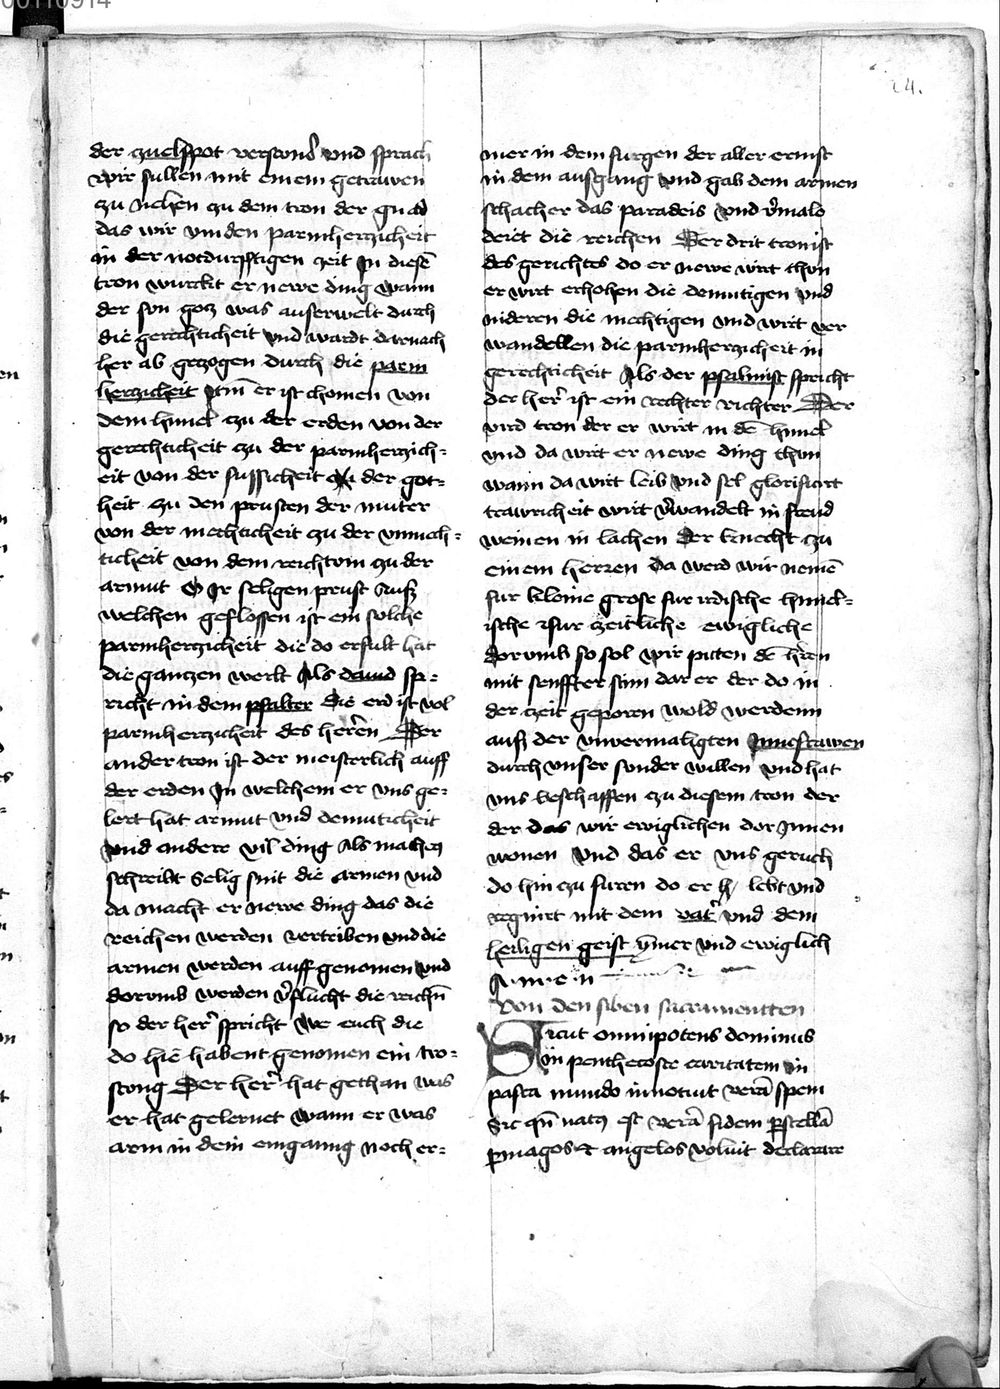 00110914
24.
der zuelfpot verstond und sprach
wir sullen mit einem getrawen
zu nehen zu dem tron der gnad
das wir vinden parmherzicheit
in der notdurfftigen zeit In diesē
tron wurckt er newe ding wann
der son gotz was auserwelt durch
die gerechticheit vnd wardt darnach
her ab getzogen durch die parm
herzicheit er ist chomen von
dem himel zu der erden von der
gerechticheit zu der parmherzich=
eit von der sussicheit der got=
heit zu den prusten der muter
von der mechticheit zu der vnmech=
ticheit von dem reichtom zu der
armut O Ir seligen prust Ausz
welchen geflossen ist ein solche
parmherzicheit die do erfult hat
die gantzen werlt Als dauid sp=
richt in dem psalter die erd ist vol
parmherzicheit des herēn Der
ander tron ist der meisterlich auff
der erden In welchem er vns ge=
lert hat armut vnd demuticheit
vnd andere vil ding Als matheus
schreibt Selig sint die armen vnd
da macht er newe ding das die
reichen werden vertriben vnd die
armen werden auff genomen vnd
dorumb werden v̄flucht die reichn̄
so der her spricht We euch die
do hie habent genomen ein tro=
stong Der her hat gethan was
er hat gelernet wann er was
arm in dem eingang noch er=
mer in dem furgen der aller ermst
in dem ausgang vnd gab dem armen
schacher das paradeis vnd v̄malo
deiet die reichen Der drit tron ist
des gerichtes do er newe wirt thon
er wirt erhohen die demutigen vnd
nideren die mechtigen vnd wirt ver
wandellen die parmherzicheit in
gerechticheit Als der psalmist spricht
der her ist ein rechter richter Der
vird tron der er wirt in dē himel
vnd da wirt er newe ding thun
wann da wirt leib vnd sel glorifizirt
trawricheit wirt v̄wandelt in freud
weinen in lachen Der knecht zu
einem herren da werd wir nemē
fur kleine grose fur irdische himel=
ische fur zeitliche ewigliche
dorumb so sol wir pitten dē hēren
mit senffter stim dar er der do in
der zeit geporen wold werdenn
ausz der vnvermaligten Juncfrawen
durch vnser sunder willen vnd hat
vns beschaffen zu diesem tron der
der das wir ewiglichen dor Jnnen
wonen Vnd das er vns geruch
do hin zu furen do er lebt vnd
regnirt mit dem vat̄ vnd dem
heiligen geist ymer vnd ewiglich
A.m.e.n
Von den siben sacramentten
Sicut omnipotens dominus
in penthecoste caritatem in
pasca mundo innotuit verā spem
Sic qn̄ natꝰ est verā fidem ꝑ stellā
ꝑ magos et angelos voluit declarare